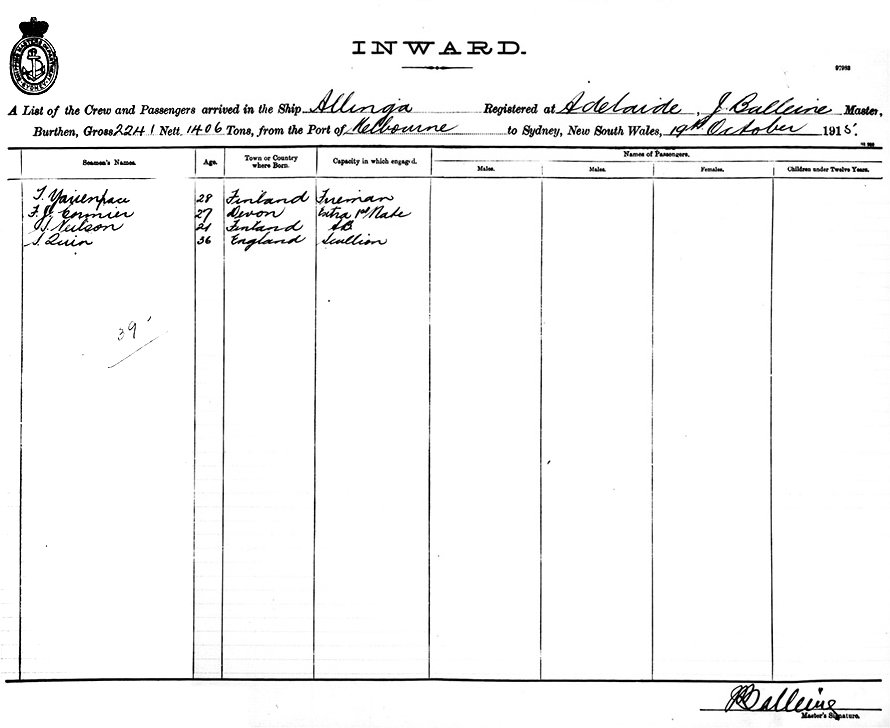 INWARD.
97983
A List of the Crew and Passengers arrived in the Ship Allinga Registered at Adelaide, J. Balleine Master,
Burthen, Gross 2241 Nett. 1406 Tons, from the Port of Melbourne to Sydney, New South Wales, 19th October 1915.
Names of Passengers.
Seamen's Names. Age. Town or Country where Born. Capacity in which engaged. Males. Males. Females. Children under Twelve Years.
28 Finland Fireman
F. J. Cormier 27 Devon Extra 1st Mate
J. Neilson 21 Finland AB
J. Quin 36 England Scullion
39
J Balleine
Master's Signature.